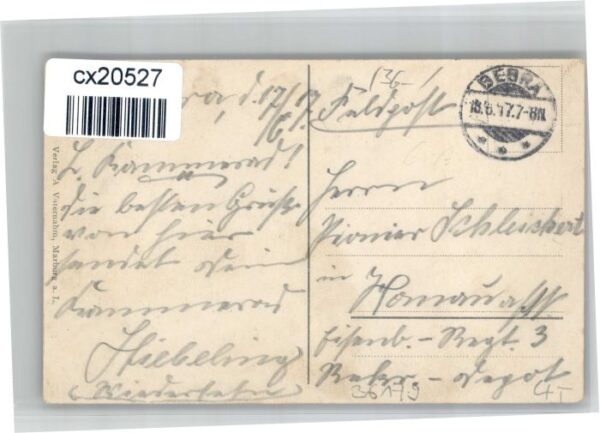 cx20527
d. 17/6. 17.
L. Kammerad!
Die besten Grüße
von hier
sendet Dein
Kammerad
Stiebeling
Wiedersehn
Verlag A. Untermahn, Marburg a. L.
Feldpost
BEBRA
18.6.17.7-8N.
Herrn
Pionier Schleichert
in
Eisenb. - Regt. 3
Rekr. - Depot
36179